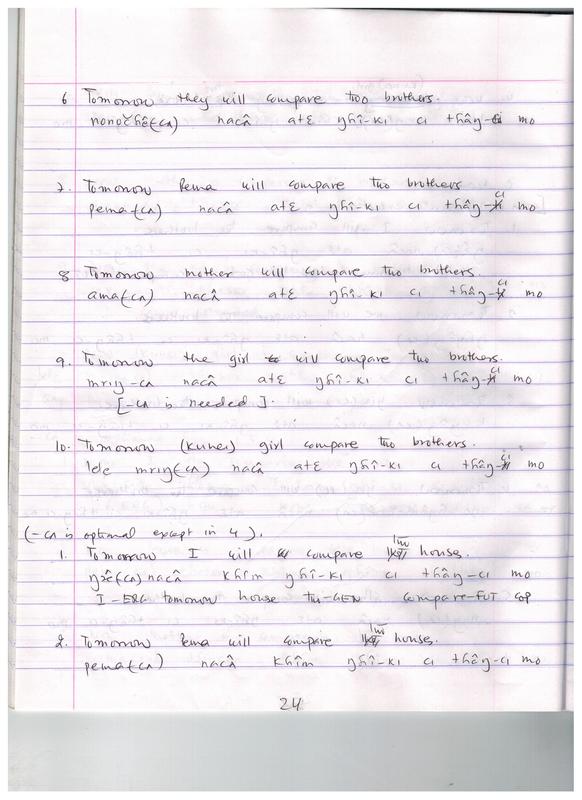 6 Tomorrow they will compare two brothers.
nonočhê(-cʌ) nacʌ̂ atɛ ŋhî-kɪ cɪ thʌ̂ŋ-cɪ mo
7. Tomorrow Pema will compare two brothers
pema(-cʌ) nacʌ̂ atɛ ŋhî-kɪ cɪ thʌ̂ŋ-cɪ mo
8 Tomorrow mother will compare two brothers.
ama(-cʌ) nacʌ̂ atɛ ŋhî-kɪ cɪ thʌ̂ŋ-cɪ mo
9. Tomorrow the girl will compare two brothers.
mrɪŋ-cʌ nacʌ̂ atɛ ŋhî-kɪ cɪ thʌ̂ŋ-cɪ mo
[-cʌ is needed].
10. Tomorrow (kuhei) girl compare two brothers.
lde mrɪŋ(-cʌ) nacʌ̂ atɛ ŋhî-kɪ cɪ thʌ̂ŋ-cɪ mo
(-cʌ is optional except in 4).
1. Tomorrow I will compare two houses.
ŋxê(-cʌ) nacʌ̂ khîm ŋhî-kɪ cɪ thʌ̂ŋ-cɪ mo
I-ERG tomorrow house two-GEN compare-FUT COP
2. Tomorrow Pema will compare two houses.
pema(-cʌ) nacʌ̂ khîm ŋhî-kɪ cɪ thʌ̂ŋ-cɪ mo
24